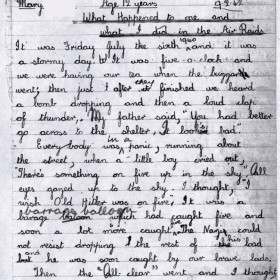 Mary Age 12 years 9.2.42
What Happened to me and
what I did in the Air Raids
It was Friday July the sixth 1940 and it was
a stormy day. It was five o'clock and
we were having our tea when the buzzer
went; then just after it finished we heard
a bomb dropping and then a loud clap
of thunder, My father said, "You had better
go across to the shelter, it looks bad".
Every body was panic, running about
the street, when a little boy cried out,
"There's something on fire up in the sky", All
eyes gazed up to the sky. I thought, I
wish Old Hitler was on fire. It was a
barrage balloon
which had caught five and
soon a lot more caught. The Nazi could
not resist dropping the rest of his bad
and he was soon caught by our brave lads.
Then the "All clear" went and I thought